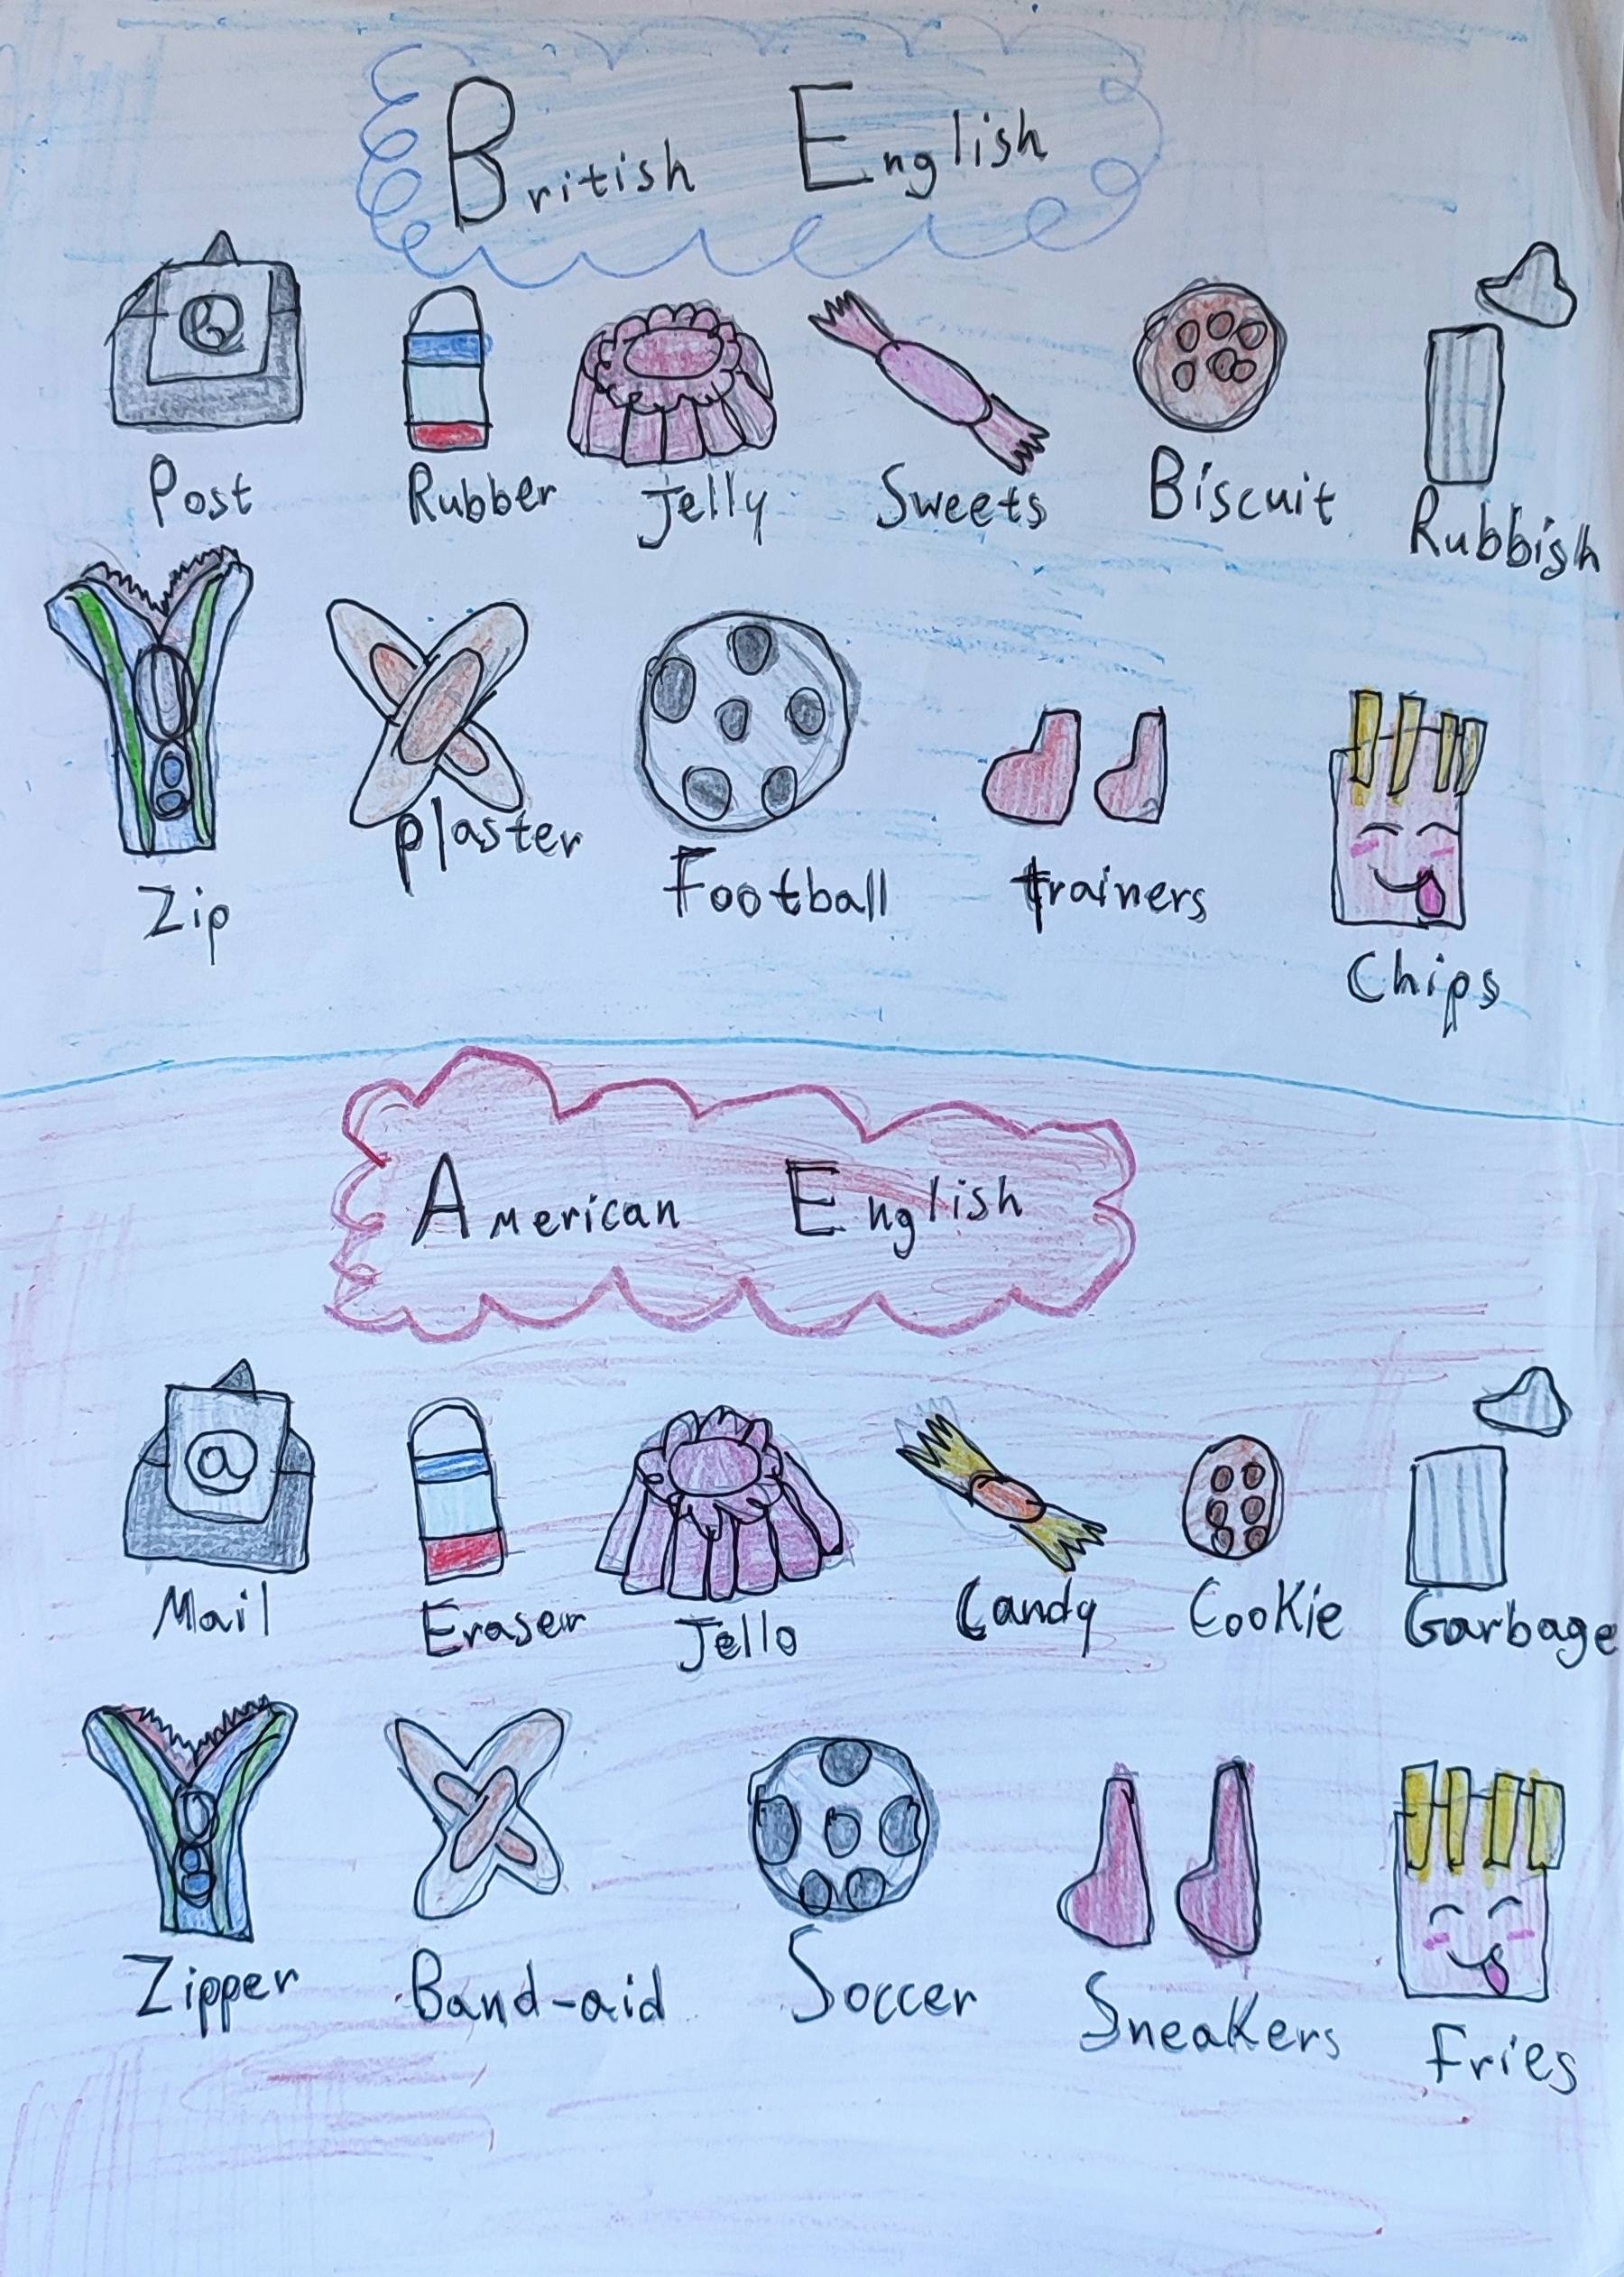 British English
Post Rubber Jelly Sweets Biscuit Rubbish
Zip plaster Football trainers Chips
American English
@
Mail Eraser Jello Candy Cookie Garbage
Zipper Band-aid Soccer Sneakers Fries